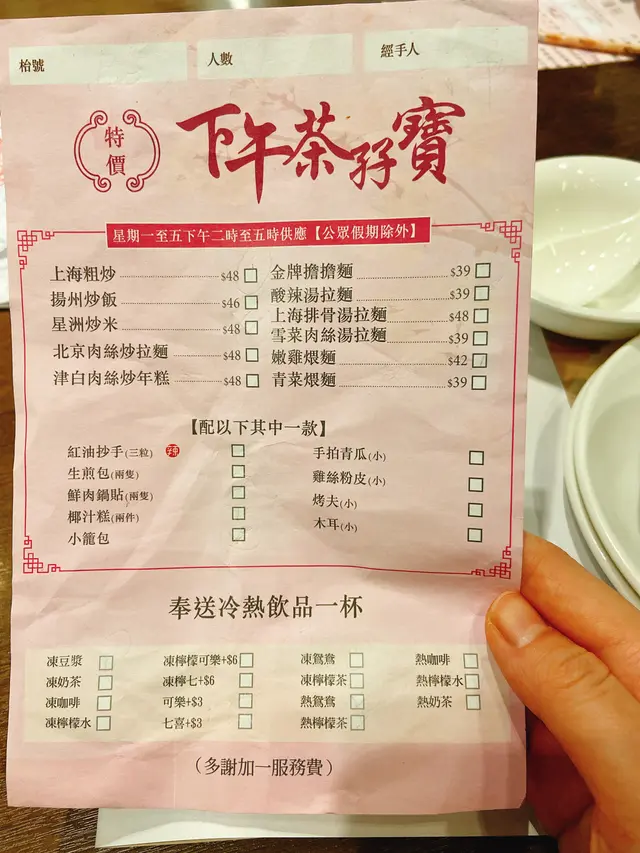 枱號 人數 經手人
特價
下午茶孖寶
星期一至五下午二時至五時供應【公眾假期除外】
上海粗炒 $48
揚州炒飯 $46
星洲炒米 $48
北京肉絲炒拉麵 $48
津白肉絲炒年糕 $48
金牌擔擔麵 $39
酸辣湯拉麵 $39
上海排骨湯拉麵 $48
雪菜肉絲湯拉麵 $39
嫩雞煨麵 $42
青菜煨麵 $39
【配以下其中一款】
紅油抄手(三粒) 辣
生煎包(兩隻)
鮮肉鍋貼(兩隻)
椰汁糕(兩件)
小籠包
手拍青瓜(小)
雞絲粉皮(小)
烤夫(小)
木耳(小)
奉送冷熱飲品一杯
凍豆漿
凍奶茶
凍咖啡
凍檸檬水
凍檸檬可樂+$6
凍檸七+$6
可樂+$3
七喜+$3
凍鴛鴦
凍檸檬茶
熱鴛鴦
熱檸檬茶
熱咖啡
熱檸檬水
熱奶茶
(多謝加一服務費)